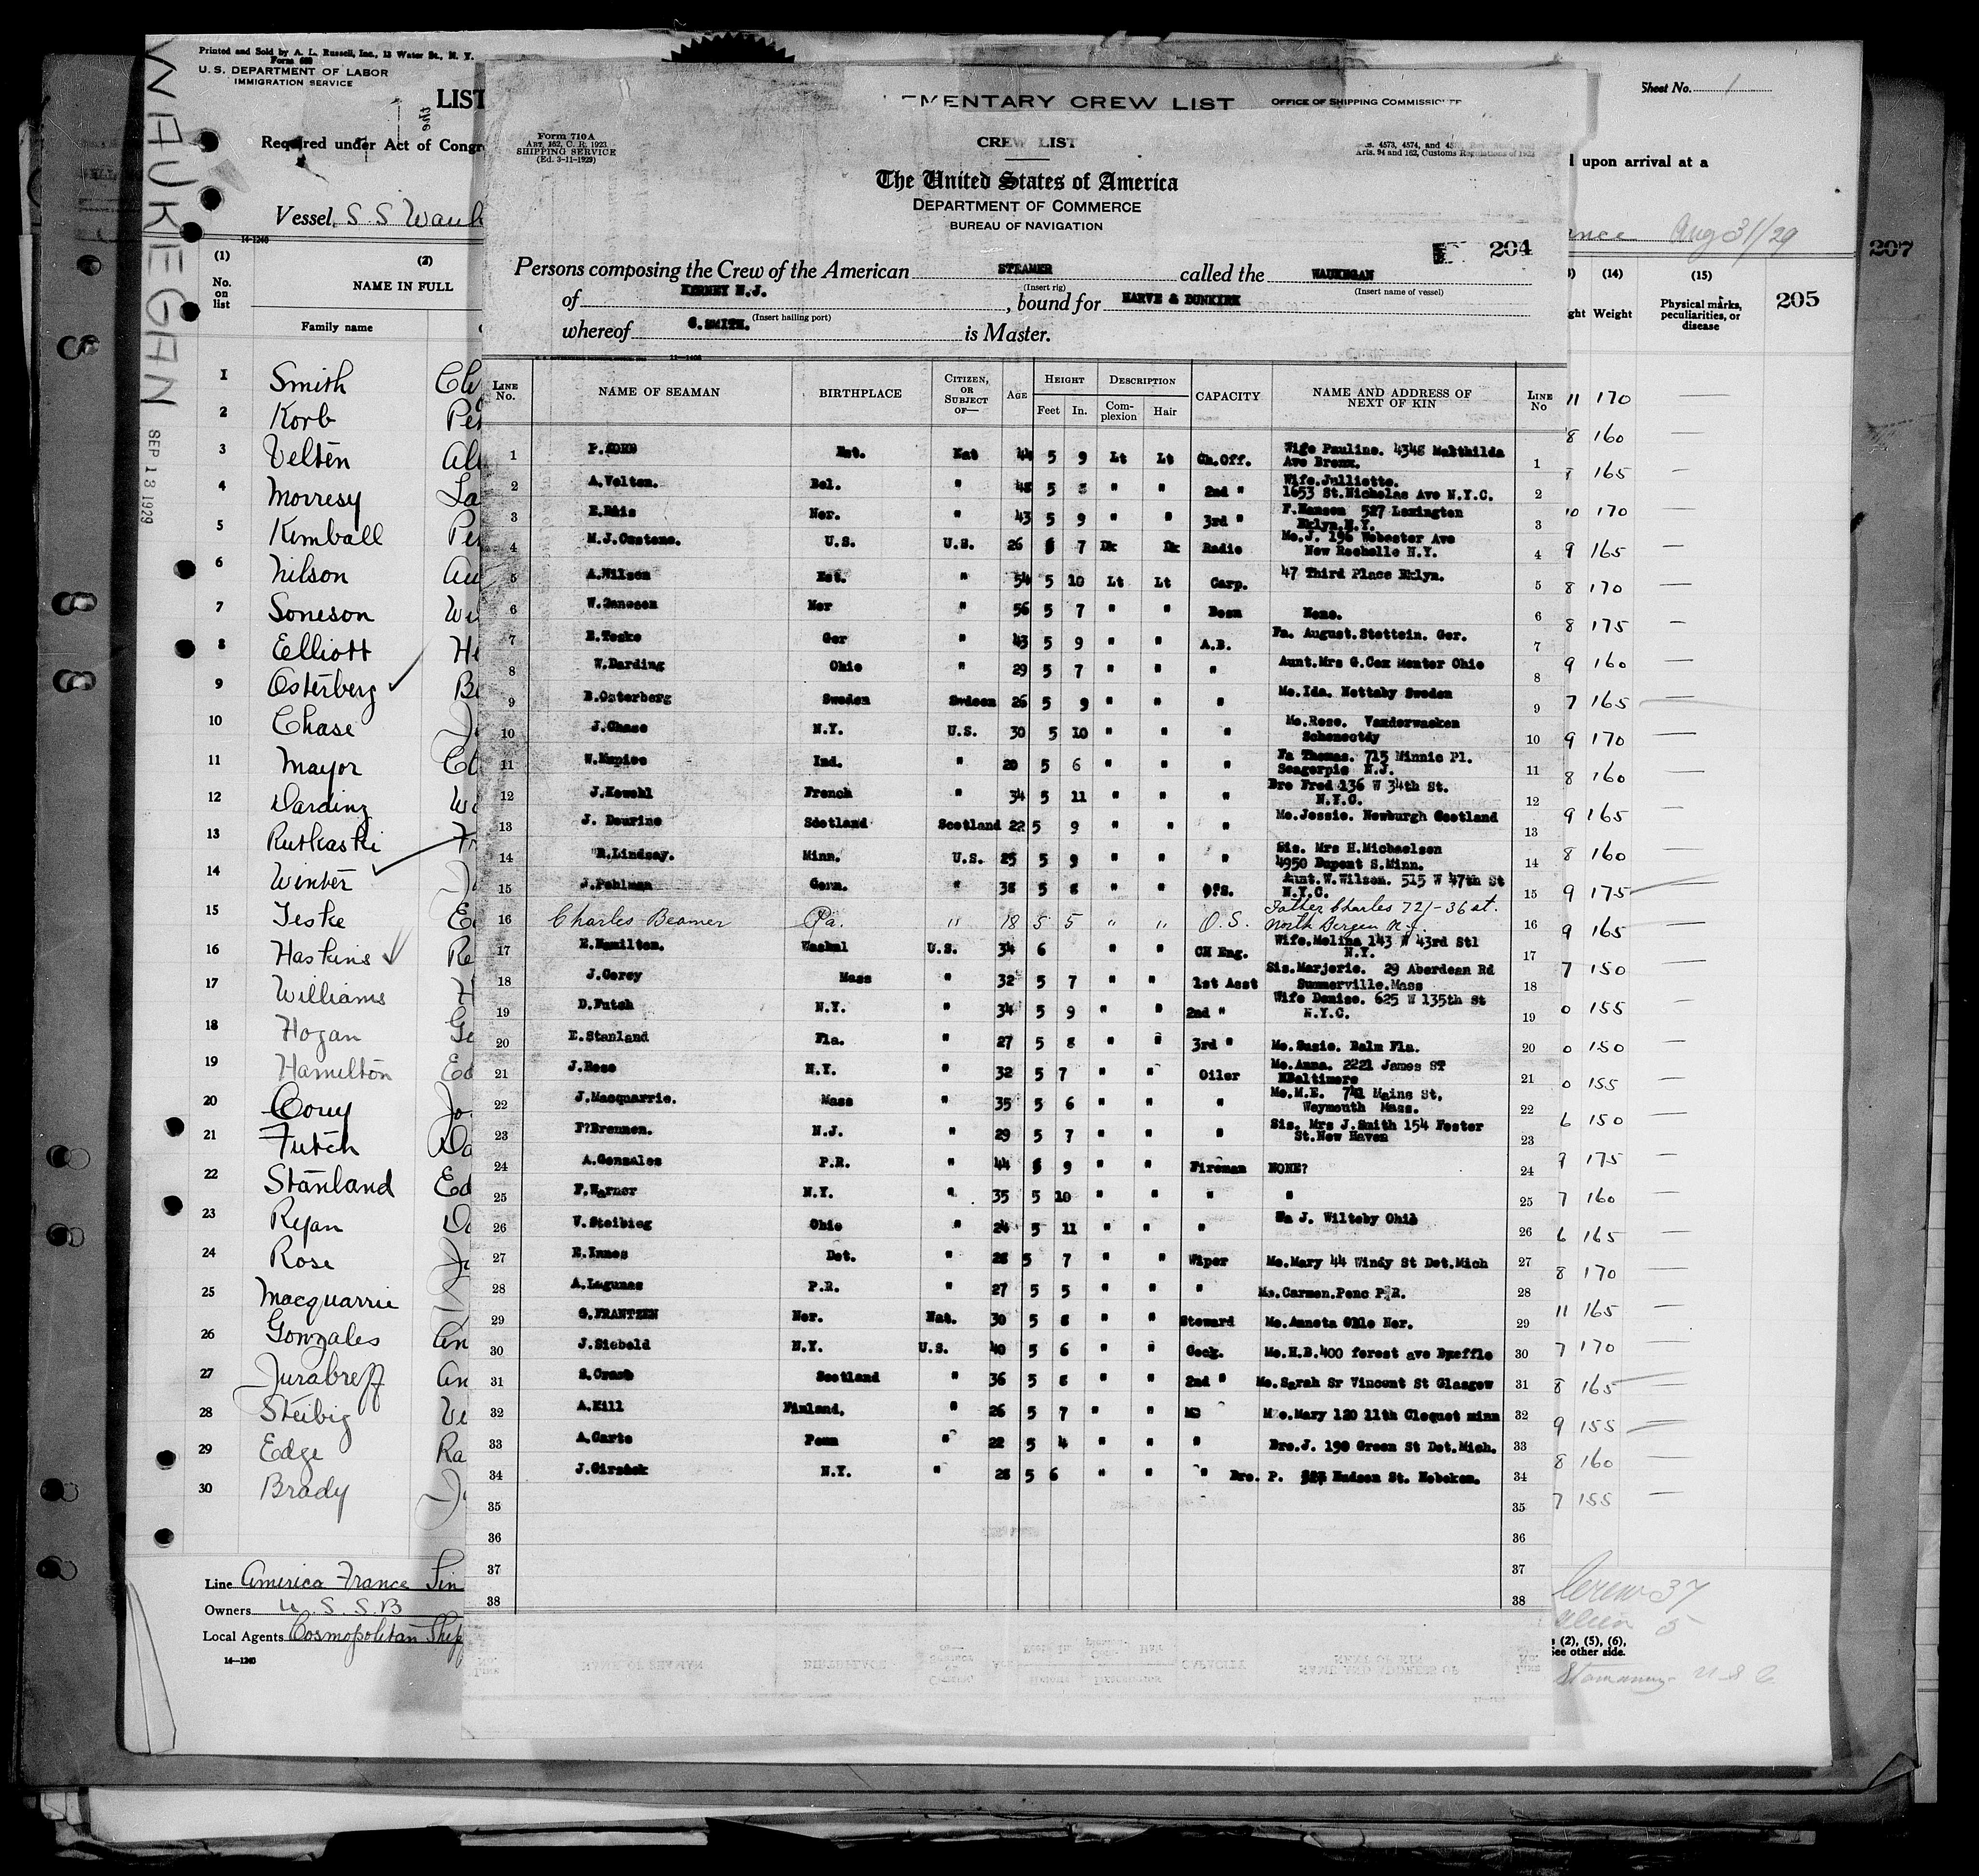 WAUKEGAN SEP 13 1929
Printed and Sold by A. L. Russell, Inc., 12 Water St., N. Y.
Form 689
U. S. DEPARTMENT OF LABOR
IMMIGRATION SERVICE
LIST
Required under Act of Congre
Vessel, S S Wauk
14-1240
(1) (2)
No. on list NAME IN FULL
Family name
1 Smith Cl
2 Korb Per
3 Velten Al
4 Morresy La
5 Kimball Per
6 Nilson Au
7 Soneson Wi
8 Elliott H
9 Osterberg B
10 Chase J
11 Mayor Cl
12 Darding W
13 Rutkaski Fr
14 Winter J
15 Teske E
16 Haskins Re
17 Williams H
18 Hogan Ge
19 Hamilton Ed
20 Corey Jo
21 Futch Da
22 Stanland Ed
23 Ryan Do
24 Rose Ja
25 Macquarrie
26 Gonzales An
27 Jurabreff An
28 Steibig Vi
29 Edge Ra
30 Brady J
Line America France Lin
Owners U. S. S. B
Local Agents Cosmopolitan Ship
14-1240
EMENTARY CREW LIST OFFICE OF SHIPPING COMMISSIONER
Form 710 A
ART. 162, C. R. 1923
SHIPPING SERVICE
(Ed. 3-11-1929)
CREW LIST
4573, 4574, and
Arts. 94 and 162, Customs Regulations of 1923
The United States of America
DEPARTMENT OF COMMERCE
BUREAU OF NAVIGATION
204
Persons composing the Crew of the American STEAMER called the WAUKEGAN
(Insert rig) (Insert name of vessel)
of KERNEY N.J. , bound for HARVE & DUNKIRK
(Insert hailing port)
whereof G. SMITH. is Master.
11-1406
LINE No. NAME OF SEAMAN BIRTHPLACE CITIZEN, OR SUBJECT OF— AGE HEIGHT Feet In. DESCRIPTION Complexion Hair CAPACITY NAME AND ADDRESS OF NEXT OF KIN LINE No
1 P.KORB Est. Nat 44 5 9 Lt Lt Ch.Off. Wife Pauline. 4348 Matthilda Ave Bronx. 1
2 A.Velten. Bel. " 48 5 8 " " 2nd " Wife.Julliette. 1653 St.Nicholas Ave N.Y.C. 2
3 Nor. " 43 5 9 " " 3rd " F.Hansen 527 Lexington Bklyn.N.Y. 3
4 M.J.Custens. U.S. U.S. 26 5 7 Dk Dk Radio Mo.J. 196 Webester Ave New Rochelle N.Y. 4
5 A.Nilson Est. " 54 5 10 Lt Lt Carp. 47 Third Place Bklyn. 5
6 W.Sonesen Nor " 56 5 7 " " Bosn None. 6
7 E.Teske Ger " 43 5 9 " " A.B. Fa. August.Stettein. Ger. 7
8 W.Darding Ohio " 29 5 7 " " " Aunt.Mrs G.Cox Mentor Ohio 8
9 B.Osterberg Sweden Swdeen 26 5 9 " " " Mo.Ida. Nettaby Sweden 9
10 J.Chase N.Y. U.S. 30 5 10 " " " Mo.Rose. Vanderwacken Schenectdy 10
11 Ind. " 20 5 6 " " " Fa Thomas. 715 Minnie Pl. Seagerpie N.J. 11
12 J.Kowehl French " 34 5 11 " " " Bro Fred 136 W 34th St. N.Y.C. 12
13 J. Dourine Sdotland Scotland 22 5 9 " " " Mo.Jessie. Newburgh Scotland 13
14 R.Lindsay. Minn. U.S. 25 5 9 " " " Sis. Mrs H.Michaelsen 4950 Dupont S.Minn. 14
15 J.Pohlman Germ. " 38 5 8 " " O?S. Aunt.W.Wilson. 515 W 47th St N.Y.C. 15
16 Charles Beamer Pa. " 18 5 5 " " O.S. Father Charles 721-36 st. North Bergen N.J. 16
17 E.Hamilton. U.S. 34 6 " " CH Eng. Wife.Melina 143 W 43rd Stl N.Y. 17
18 J.Corey Mass " 32 5 7 " " 1st Asst Sis.Marjorie. 29 Aberdean Rd Summerville.Mass 18
19 D.Futch N.Y. " 34 5 9 " " 2nd " Wife Denise. 625 W 135th St N.Y.C. 19
20 E.Stanland Fla. " 27 5 8 " " 3rd " Mo.Susie. Balm Fla. 20
21 J.Rose N.Y. " 32 5 7 " " Oiler Mo.Anna. 2221 James ST NBaltimore 21
22 J.Macquarrie. Mass " 35 5 6 " " " Mo.M.E. 741 Maine St. Weymouth Mass. 22
23 F?Brennen. N.J. " 29 5 7 " " " Sis. Mrs J.Smith 154 Foster St.New Haven 23
24 A.Gonzales P.R. " 44 5 9 " " Fireman NONE? 24
25 F.Warner N.Y. " 35 5 10 " " " " 25
26 V.Steibing Ohio " 24 5 11 " " " Fa J. Wilteby Ohio 26
27 R.Innes Det. " 28 5 7 " " Wiper Mo.Mary 44 Windy St Det.Mich 27
28 A.Lagunas P.R. " 27 5 5 " " " Mo.Carmen.Penc P.R. 28
29 G.FRANTZEN Nor. Nat. 30 5 8 " " Steward Mo.Anneta Oslo Nor. 29
30 J.Siebold N.Y. U.S. 40 5 6 " " Cock. Mo.H.B.400 forest ave Buffle 30
31 S.Crasb Scotland " 36 5 8 " " 2nd " Mo.Sarah Sr Vincent St Glasgow 31
32 A.Hill Finland. " 26 5 7 " " Mo.Mary 120 11th Cloquet minn 32
33 A.Carte Penn " 22 5 4 " " " Bro.J. 190 Green St Det.Mich. 33
34 J.Cirsack N.Y. " 28 5 6 " " " Bro. P. Hudson St. Hoboken. 34
35 35
36 36
37 37
38 38
Sheet No. 1
upon arrival at a
ance Aug 31/29
207
(14) (15)
ght Weight Physical marks, peculiarities, or disease
205
11 170 —
8 160 —
165 —
10 170 —
9 165 —
8 170 —
8 175 —
9 160 —
7 165 —
9 170 —
8 160 —
9 165 —
8 160 —
9 175 —
9 165 —
7 150 —
0 155 —
0 150 —
0 155 —
6 150 —
9 175 —
7 160 —
6 165 —
8 170 —
11 165 —
7 170 —
8 165 —
9 155 —
8 160 —
7 155 —
Crew 37
alien 5
(2), (5), (6),
See other side.
U S C